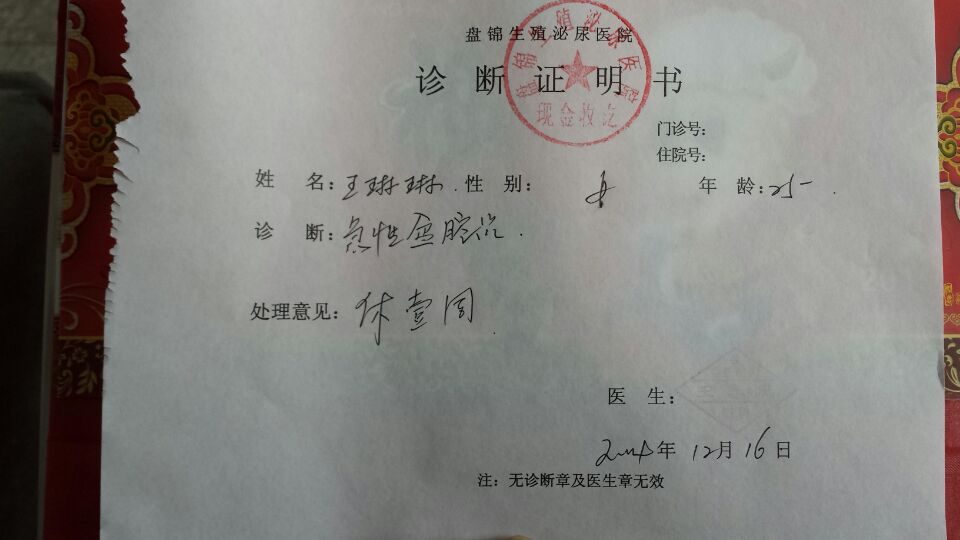 盘锦生殖泌尿医院
诊断证明书
盘锦生殖泌尿医院
现金收讫
门诊号:
住院号:
姓 名: 王琳琳. 性 别: 女 年 龄: 25.
诊 断: 急性盆腔炎.
处理意见: 休壹周.
医 生:
2014年 12月 16日
注: 无诊断章及医生章无效